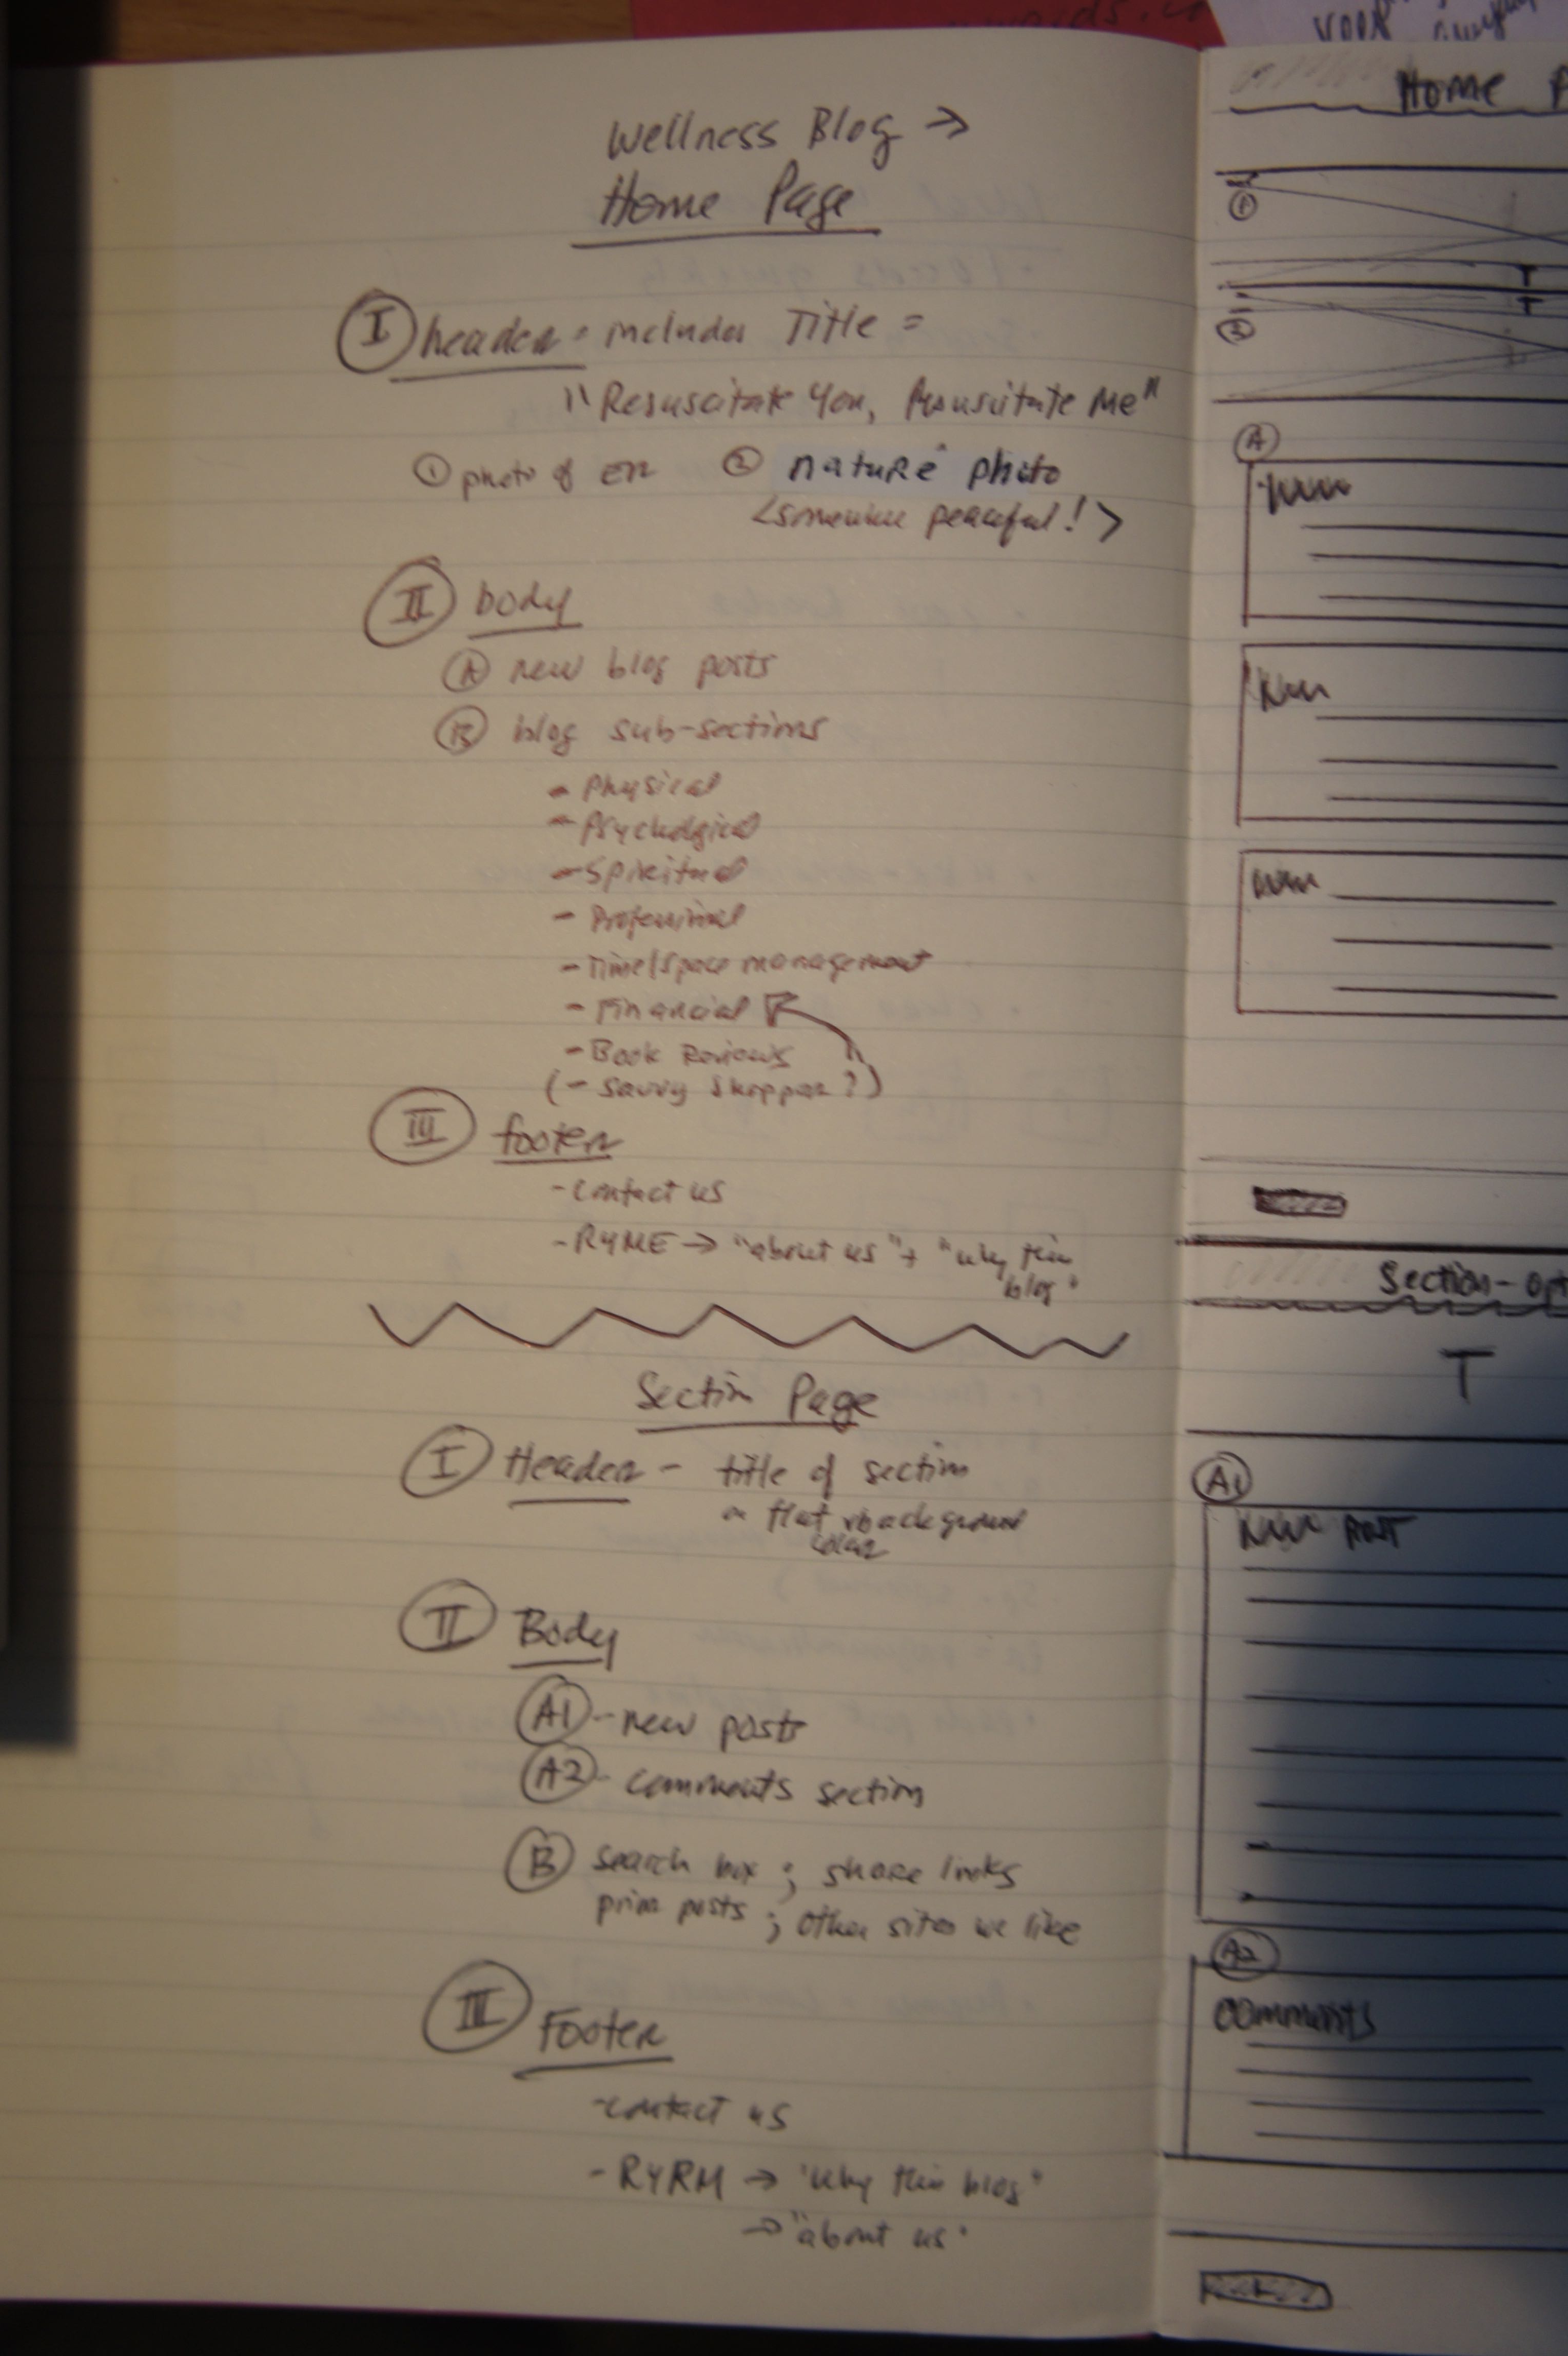 Wellness Blog →
Home Page
I header - includes Title =
"Resuscitate You, Resuscitate Me"
① photo of ER ② nature photo
<somewhere peaceful!>
II body
A new blog posts
B blog sub-sections
- Physical
- Psychological
- Spiritual
- Professional
- Time/Space management
- Financial
- Book Reviews
(- Savvy Shopper?)
III footer
- contact us
- RYME → "about us" + "why this
blog"
Section Page
I Header - title of section
flat background
color
II Body
A1 - new posts
A2 - comments section
B search box ; share links
prior posts ; other sites we like
III Footer
- contact us
- RYRM → "why this blog"
→ "about us"
Home P
①
T
T
②
A
Section - opt
T
A1
A2
comments